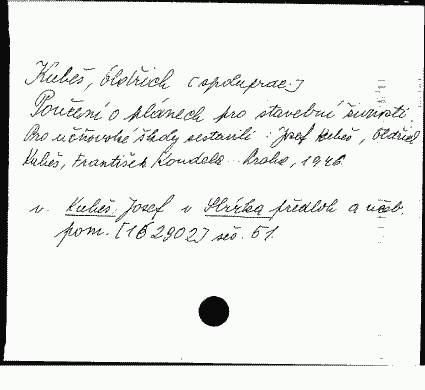 Kubeš, Oldřich (spoluprac.)
Poučení o plánech pro stavební živnosti.
Pro učňovské školy sestavili: Josef Kubeš, Oldřich
Kubeš, František Koudela. Praha, 1946
v. Kubeš, Josef v Sbírka předloh a učeb.
pom. [162902] seš. 51.